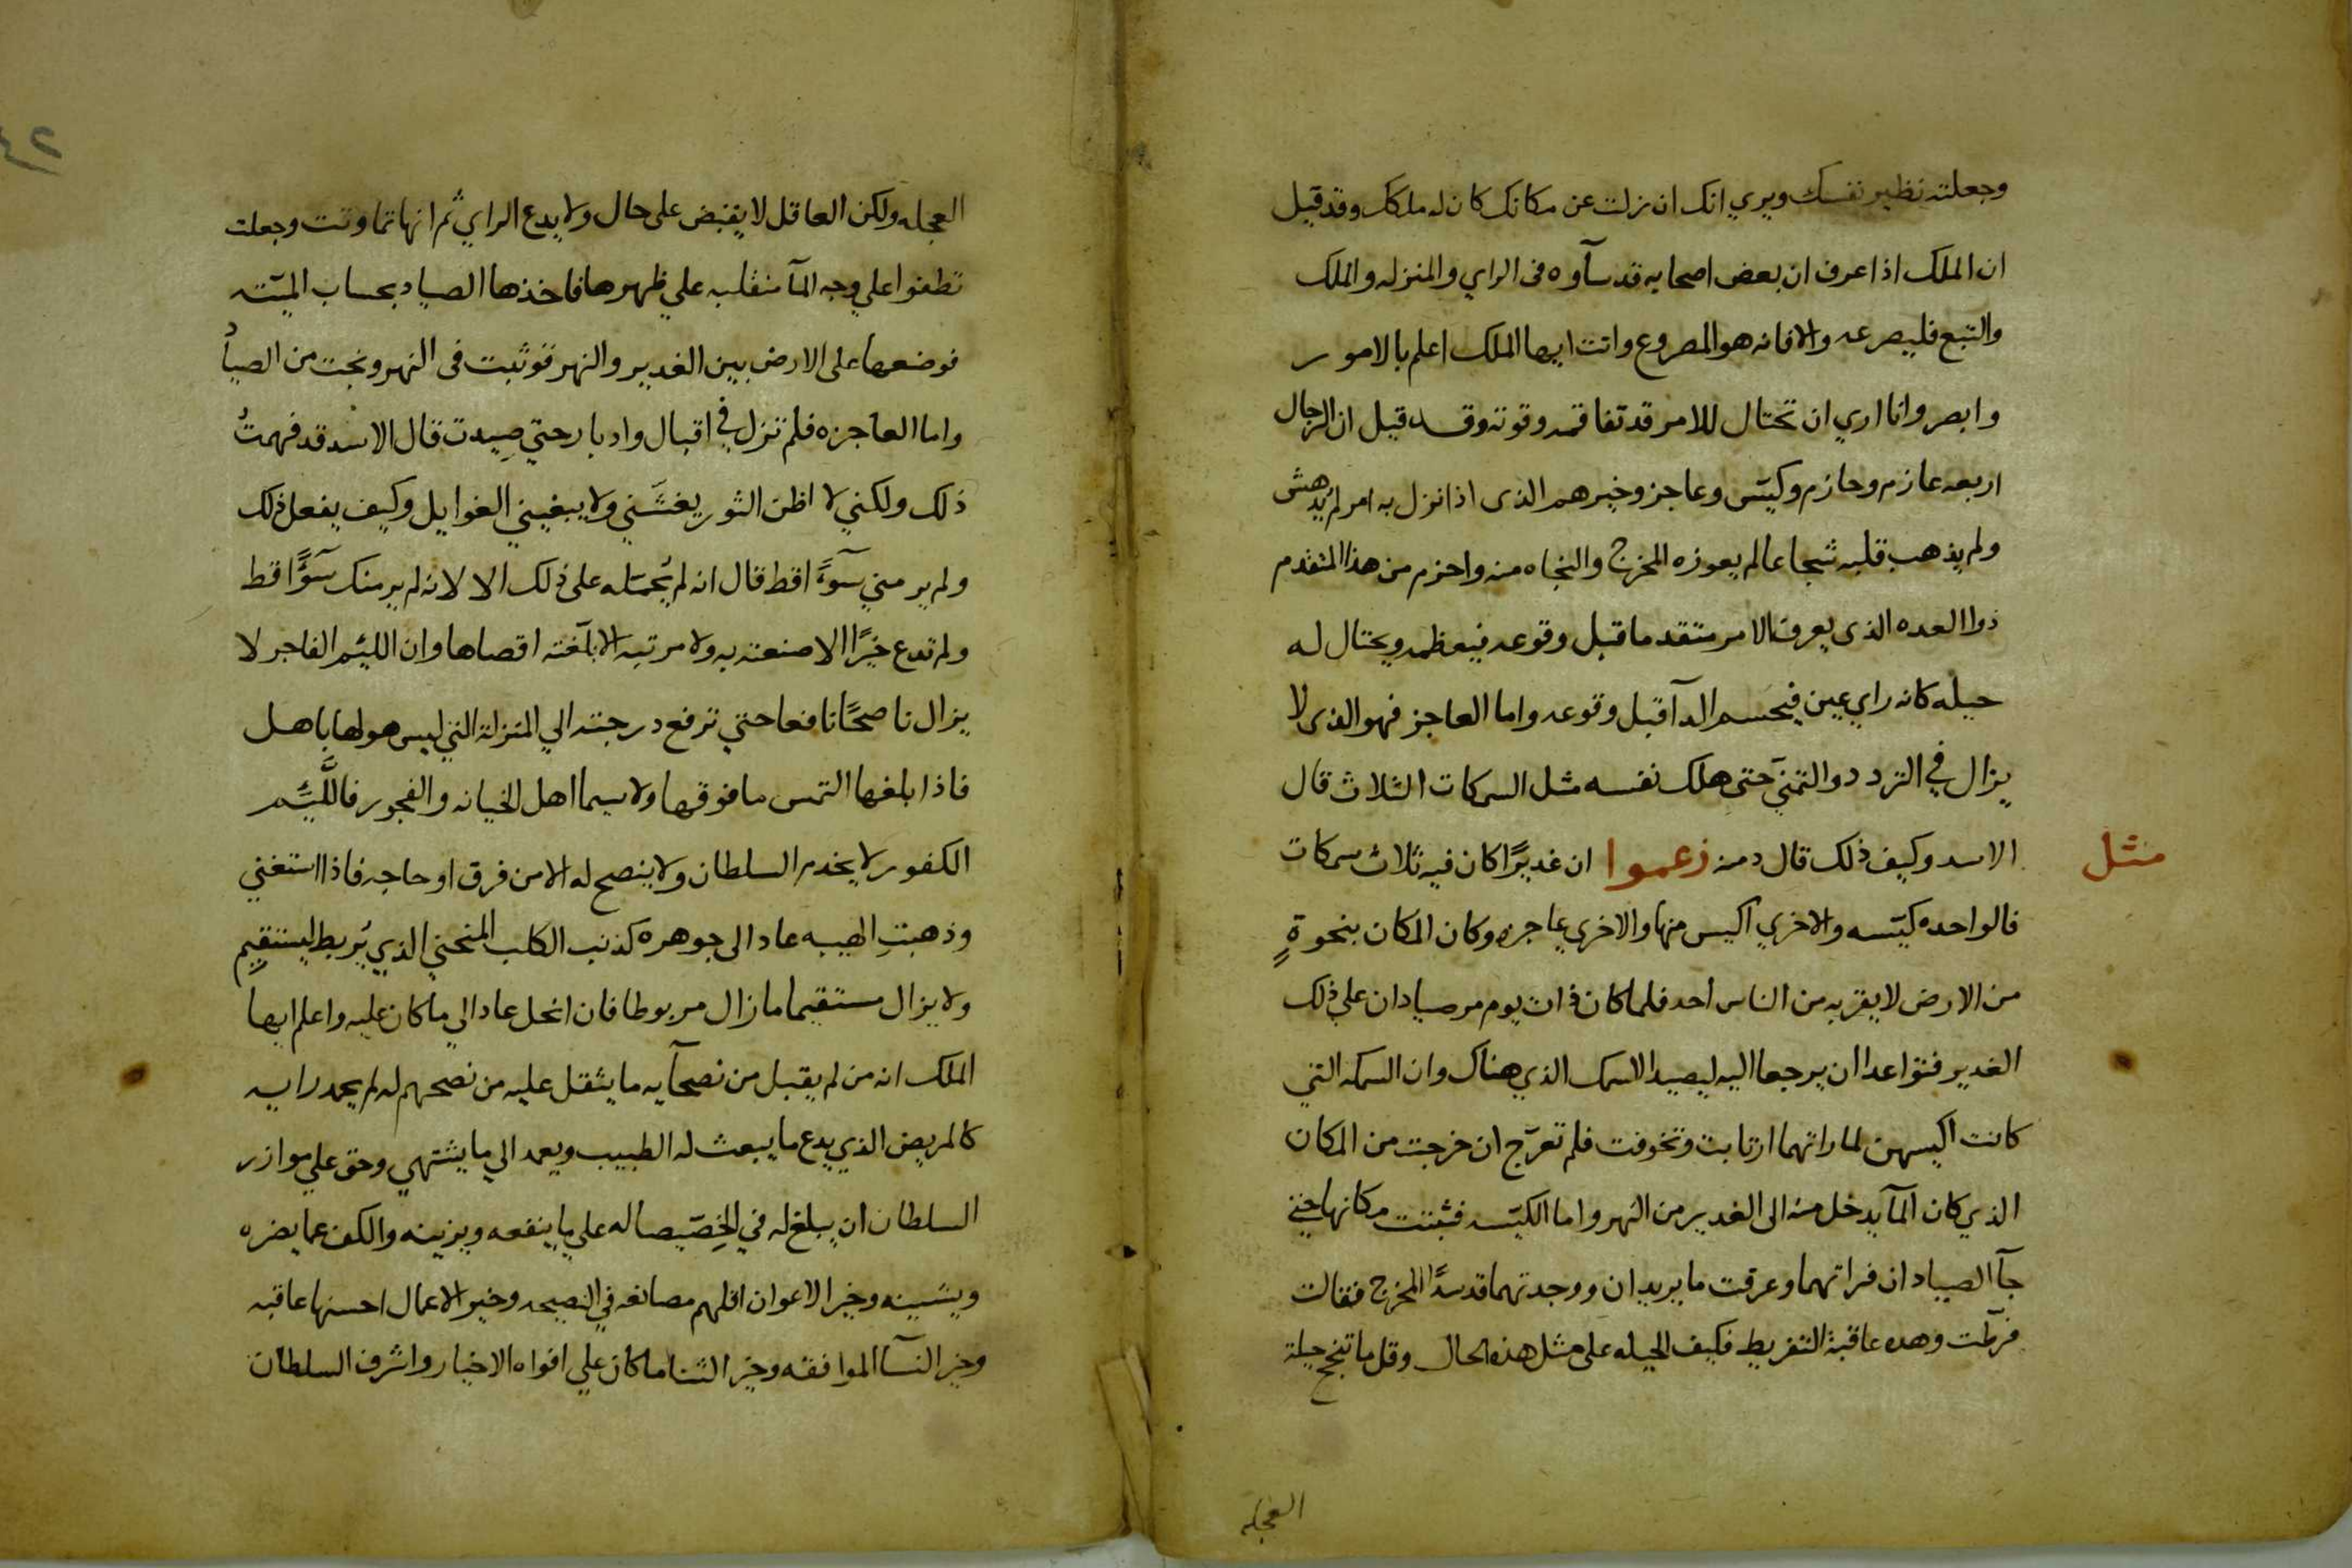 وجعلته نظير نفسك ويري انك ان زلت عن مكانك كان له ملكك وقد قيل
ان الملك اذا عرف ان بعض اصحابه قد ساوه فى الراي والمنزله والملك
والتبع فليصرعه والا فانه هو المصروع وانت ايها الملك اعلم بالامور
وابصر وانا اري ان تحتال للامر قد تفاقمه وقوته وقد قيل ان الرجال
اربعه عازم وحازم وكيّس وعاجز وخيرهم الذى اذا نزل به امر لم يُدهش
ولم يذهب قلبه شجاعا لم يعوزه المخرج والنجاه منه واحزم من هذا المتقدم
ذوا العده الذى يعرف الامر متقدما قبل وقوعه فيعظمه ويحتال له
حيله كانه راي عين فيحسم الدآ قبل وقوعه واما العاجز فهو الذى لا
يزال في التردد والتمني حتى هلك نفسه مثل السمكات الثلاث قال
مثل
الاسد وكيف ذلك قال دمنه زعموا ان غديرًا كان فيه ثلاث سمكات
فالواحده كيّسه والاخري اكيس منها والاخري عاجزه وكان المكان بنحوةٍ
من الارض لا يقربه من الناس احد فلما كان ذات يوم مر صيادان علي ذلك
الغدير فتواعدا ان يرجعا اليه ليصيدا السمك الذي هناك وان السمكه التي
كانت اكيسهن لما راتهما ارتابت وتخوفت فلم تعرّج ان خرجت من المكان
الذي كان المآ يدخل منه الى الغدير من النهر واما الكيّسه فثبتت مكانها حتي
جآ الصيادان فراتهما وعرفت ما يريدان ووجدتهما قد سدّا المخرج فقالت
فرطّت وهده عاقبة التفريط فكيف الحيله على مثل هذه الحال وقل ما تنجح حيلة
العجله
٤٢
العجله ولكن العاقل لا يقبض على حال ولا يدع الراي ثم انها تماوتت وجعلت
تطفوا علي وجه المآ منقلبه علي ظهرها فاخذها الصياد بحساب الميّته
فوضعها على الارض بين الغدير والنهر فوثبت فى النهر ونجت من الصيادُ
واما العاجزه فلم تزل في اقبال وادبار حتي صِيدت قال الاسد قد فهمتُ
ذلك ولكني لا اظن الثور يغشّني ولا يبغيني الغوايل وكيف يفعل ذلك
ولم ير مني سوءًا قط قال انه لم يُحمله على ذلك الا لانه لم ير منك سوءًا قط
ولم تدع خيرًا الا صنعته به ولا مرتبه الا بلّغته اقصاها وان اللئيم الفاجر لا
يزال ناصحًا نافعا حتي ترفع درجته الي المنزلة التي ليس هو لها باهل
فاذا بلغها التمس ما فوقها ولا سيما اهل الخيانه والفجور فاللّئيم
الكفور لا يخدم السلطان ولا ينصح له الا من فرق او حاجه فاذا استغني
وذهبتِ الهيبه عاد الى جوهره كذنب الكلب المنحني الذي يُربط ليستقيم
ولا يزال مستقيما ما زال مربوطا فان انحل عاد الي ما كان عليه واعلم ايها
الملك انه من لم يقبل من نصحآيه ما يثقل عليه من نصحهم له لم يحمد رايه
كالمريض الذي يدع ما يبعث له الطبيب ويعمد الي ما يشتهي وحق علي موازر
السلطان ان يبلغ له في التخصيصا له علي ما ينفعه ويزينه والكف عما يضره
ويشينه وخير الاعوان اقلهم مصانعه في النصيحه وخير الاعمال احسنها عاقبه
وخير النسآ الموافقه وخير الثنا ما كان علي افواه الاخيار واشرف السلطان